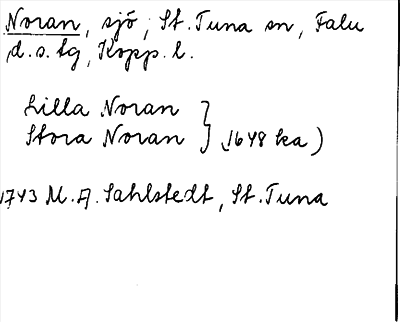 Noran, sjö, St. Tuna sn, Falu
d.s. tg, Kopp. l.
Lilla Noran
Stora Noran } (1648 ka)
1743 M. A. Sahlstedt, St. Tuna